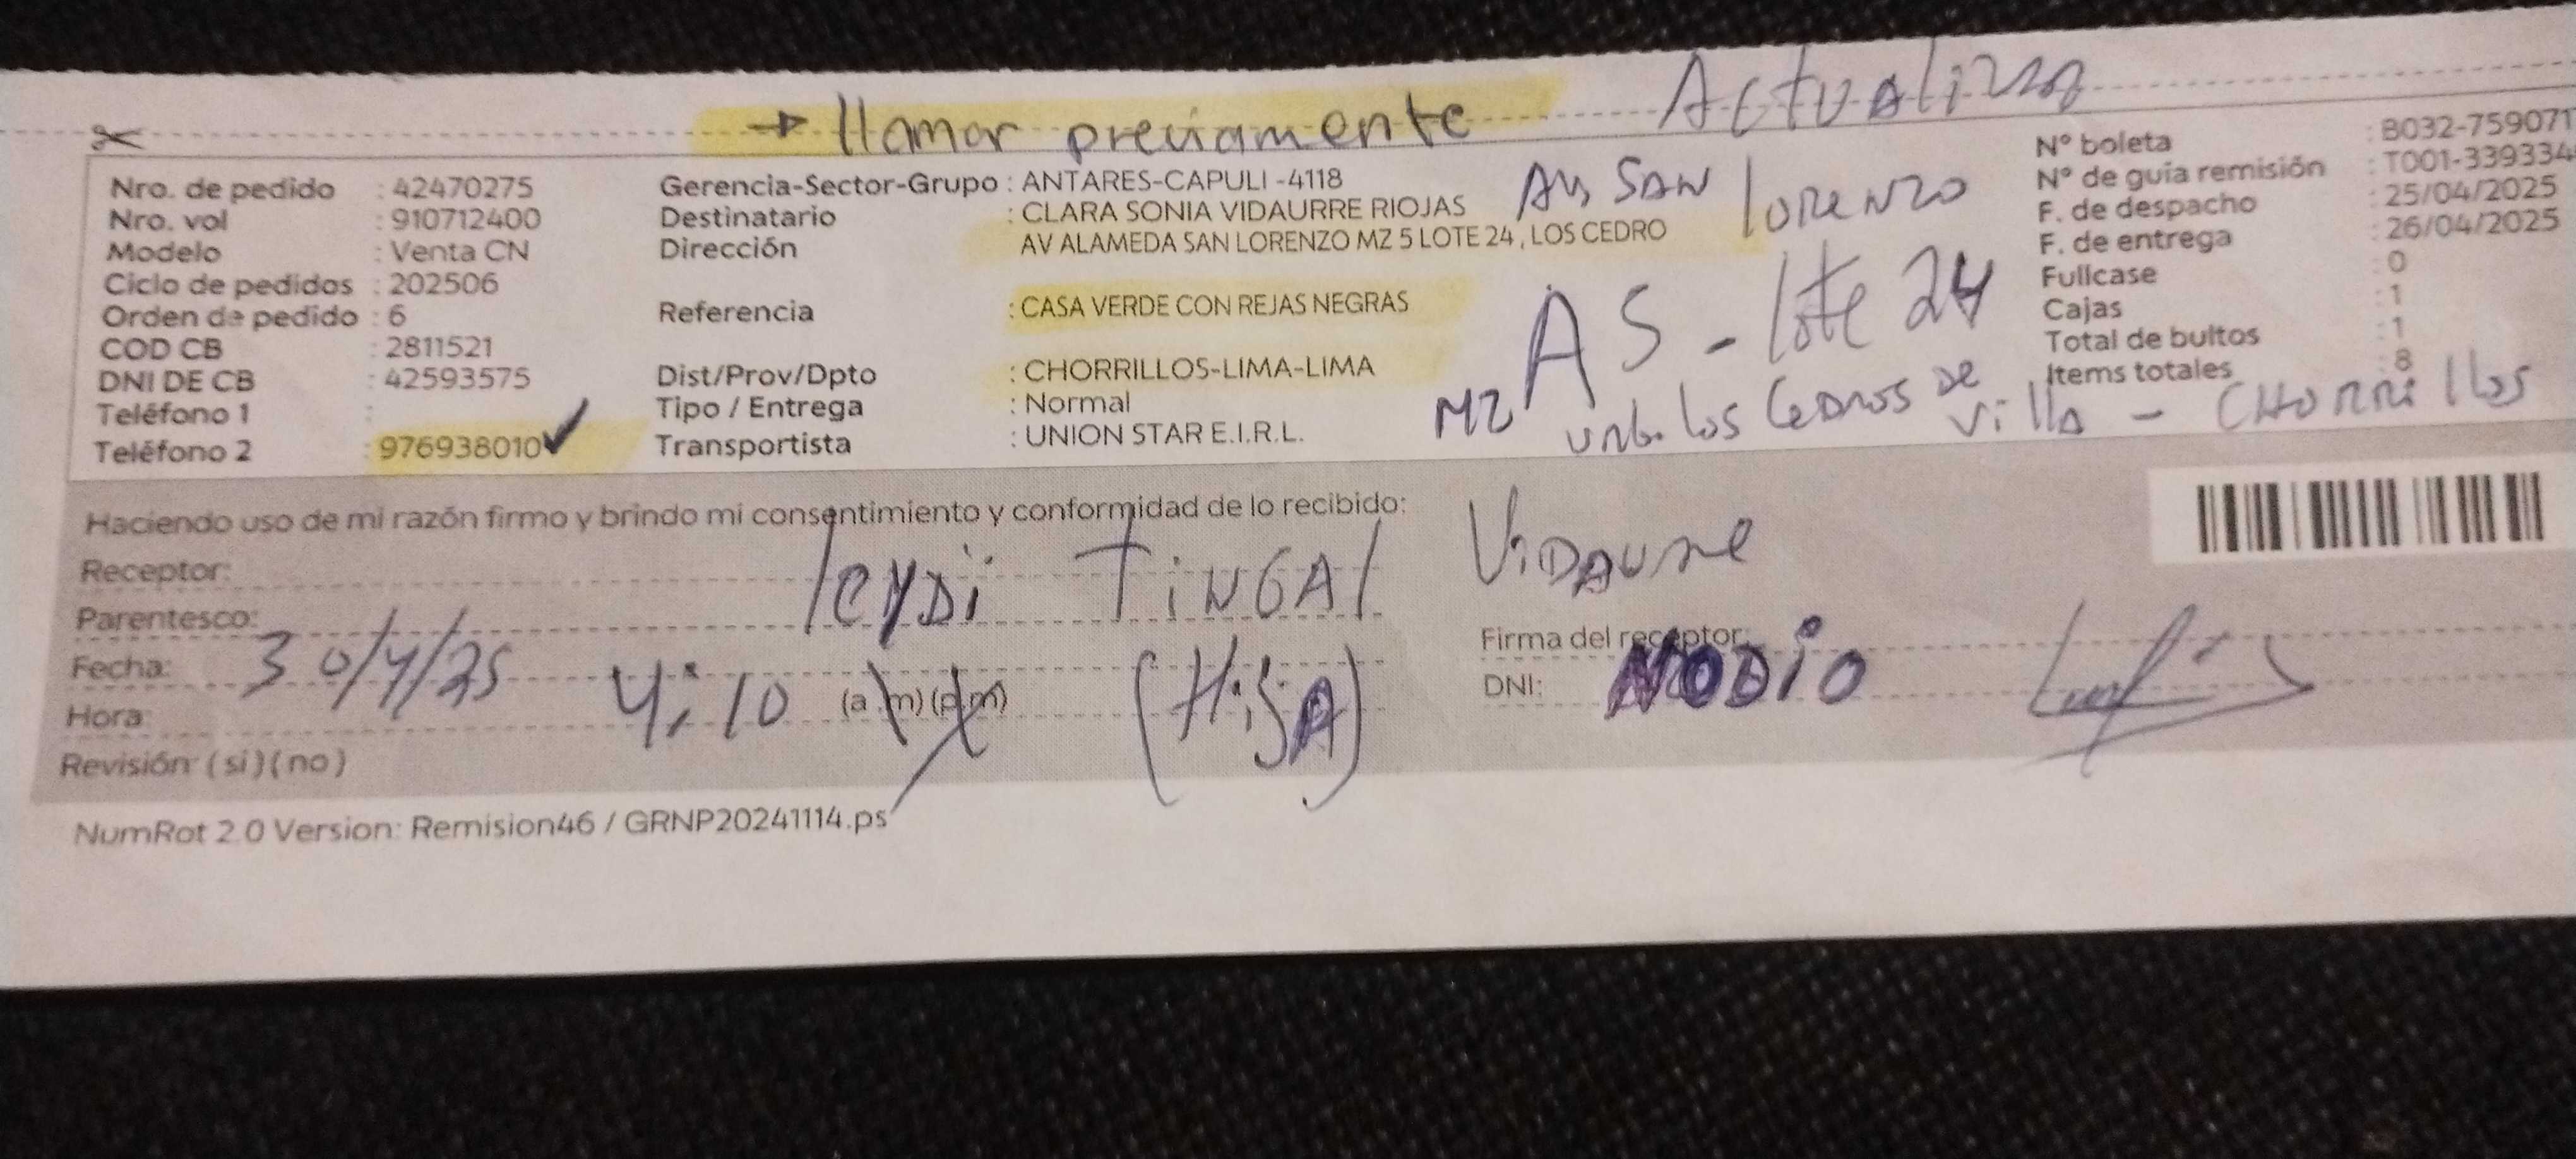 → llamar previamente Actualizar
Nro. de pedido : 42470275
Nro. vol : 910712400
Modelo : Venta CN
Ciclo de pedidos : 202506
Orden de pedido : 6
COD CB : 2811521
DNI DE CB : 42593575
Teléfono 1 :
Teléfono 2 : 976938010
Gerencia-Sector-Grupo : ANTARES-CAPULI -4118
Destinatario : CLARA SONIA VIDAURRE RIOJAS
Dirección AV ALAMEDA SAN LORENZO MZ 5 LOTE 24 , LOS CEDRO
Referencia : CASA VERDE CON REJAS NEGRAS
Dist/Prov/Dpto : CHORRILLOS-LIMA-LIMA
Tipo / Entrega : Normal
Transportista : UNION STAR E.I.R.L.
Av SAN lorenzo
MZ A5 - lote 24
urb. los Cedros De
Villa - CHORRillos
N° boleta : B032-759071
N° de guía remisión : T001-339334
F. de despacho : 25/04/2025
F. de entrega : 26/04/2025
Fullcase : 0
Cajas : 1
Total de bultos : 1
Items totales : 8
Haciendo uso de mi razón firmo y brindo mi consentimiento y conformidad de lo recibido:
Receptor: leyDi TiNGAl ViDAurre
Parentesco: (HijA)
Fecha: 30/4/25
Hora: 4:10 (a .m) (p.m)
Revisión: ( si ) ( no )
Firma del receptor:
DNI: NO Dio
NumRot 2.0 Version: Remision46 / GRNP20241114.ps